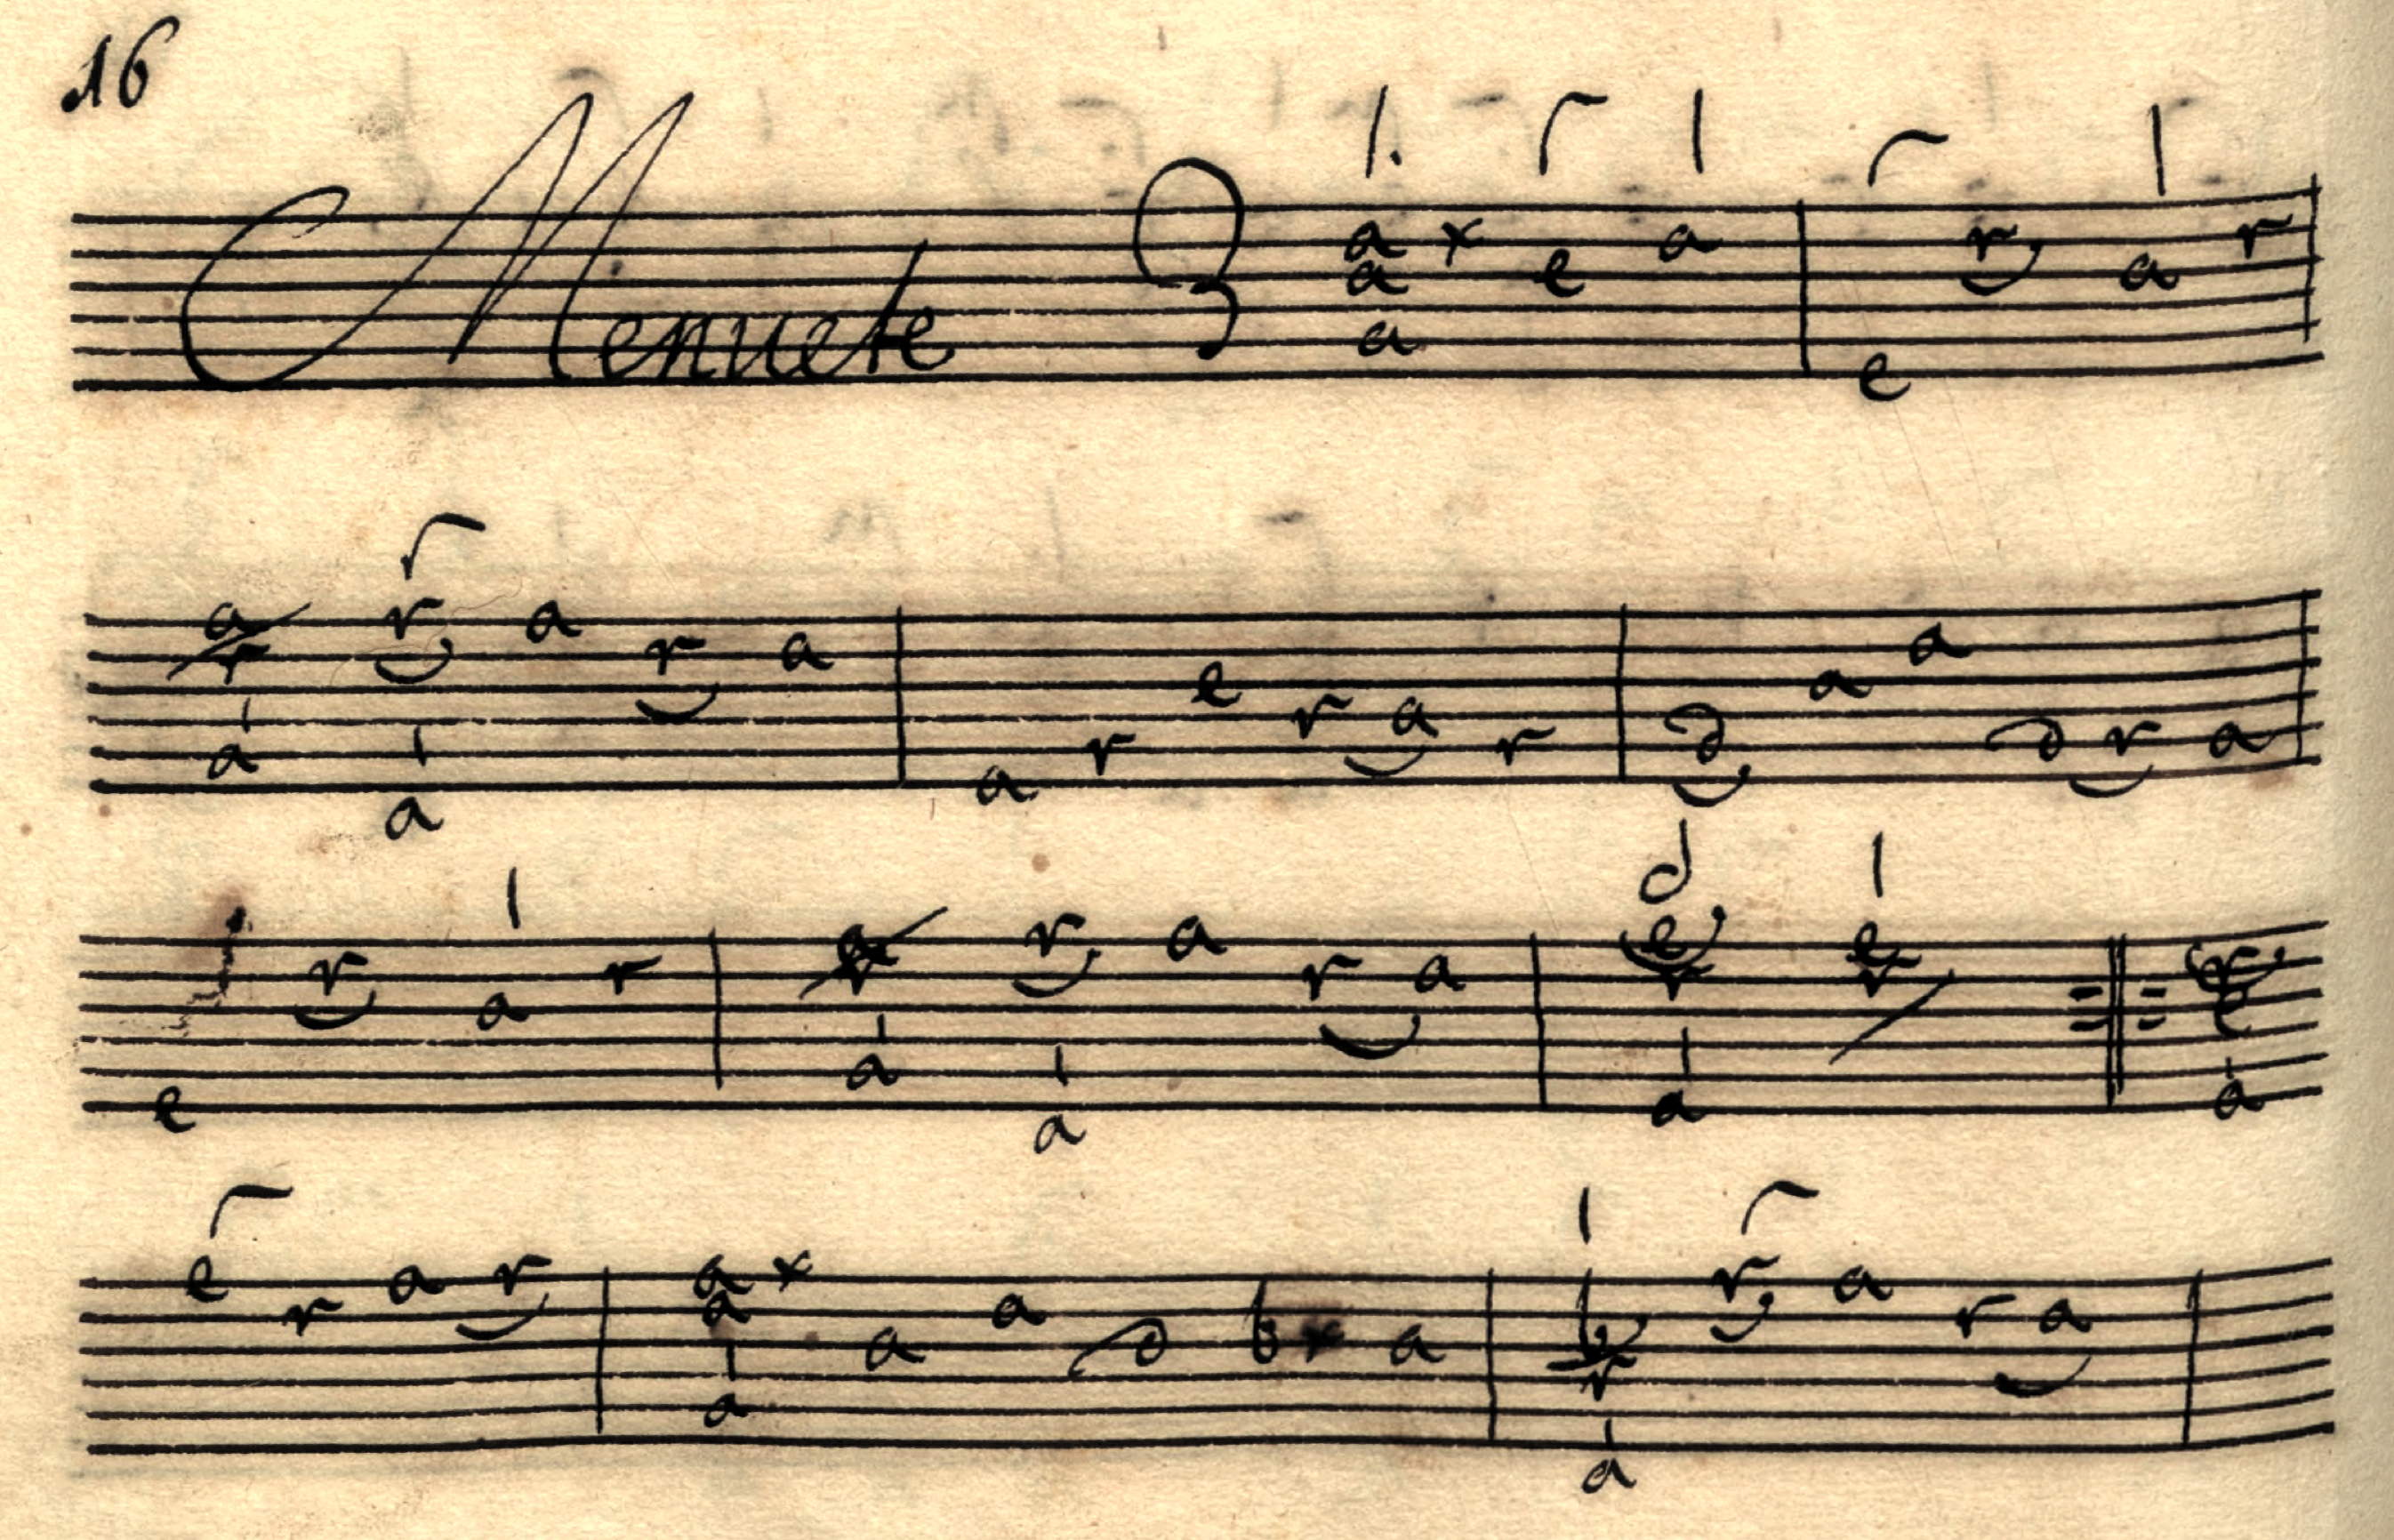 16
Menuete 3 a a a x e a e r a r
a r a r a a r a a r e r a r d a a d r a
e r a r a r a r a a r a e r a e r r e a
e r a r a a a x a a d b x a b r a r a r a